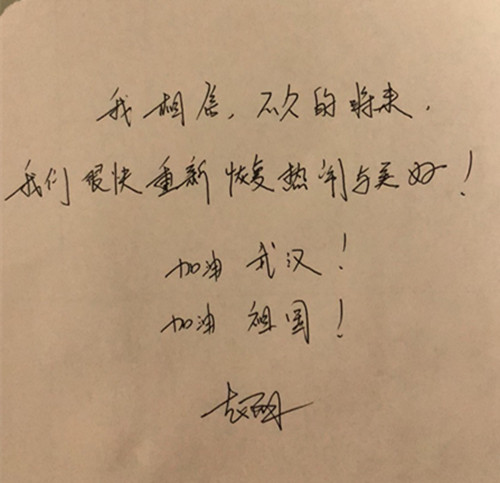 我相信，不久的将来，
我们很快重新恢复热闹与美好！
加油 武汉！
加油 祖国！